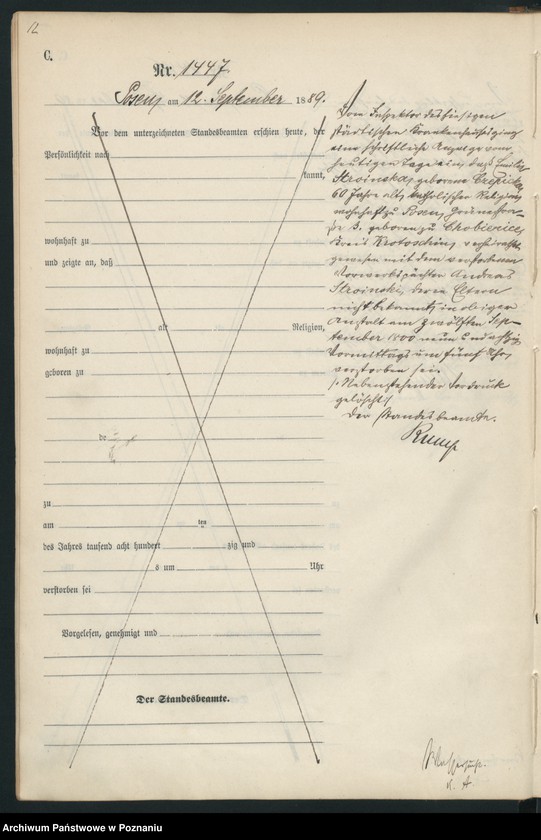 12
C.
Nr. 1447.
Posen, am 12. September 1889.
Vor dem unterzeichneten Standesbeamten erschien heute, der
Persönlichkeit nach
kannt,
wohnhaft zu
und zeigte an, daß
alt Religion,
wohnhaft zu
geboren zu
de
zu
am ten
des Jahres tausend acht hundert zig und
s um Uhr
verstorben sei
Vorgelesen, genehmigt und
Der Standesbeamte.
Vom Inspektor des hiesigen
städtischen Krankenhauses ging
eine schriftliche Anzeige vom
heutigen Tage ein, daß Emilie
Stroinska, geborene
60 Jahre alt, katholischer Religion,
wohnhaft zu Posen,
3, geboren zu
Kreis Krotoschin, verheirathet
gewesen mit dem verstorbenen
Vorwerkspächter Andreas
Stroinski, deren Eltern
nicht bekannt, in obiger
Anstalt am zwölften Sep-
tember 1800 neun und achtzig
Vormittags um fünf Uhr
verstorben sei.
Nebenstehender Vordruck
gelöscht.
Der Standesbeamte.
Archiwum Państwowe w Poznaniu